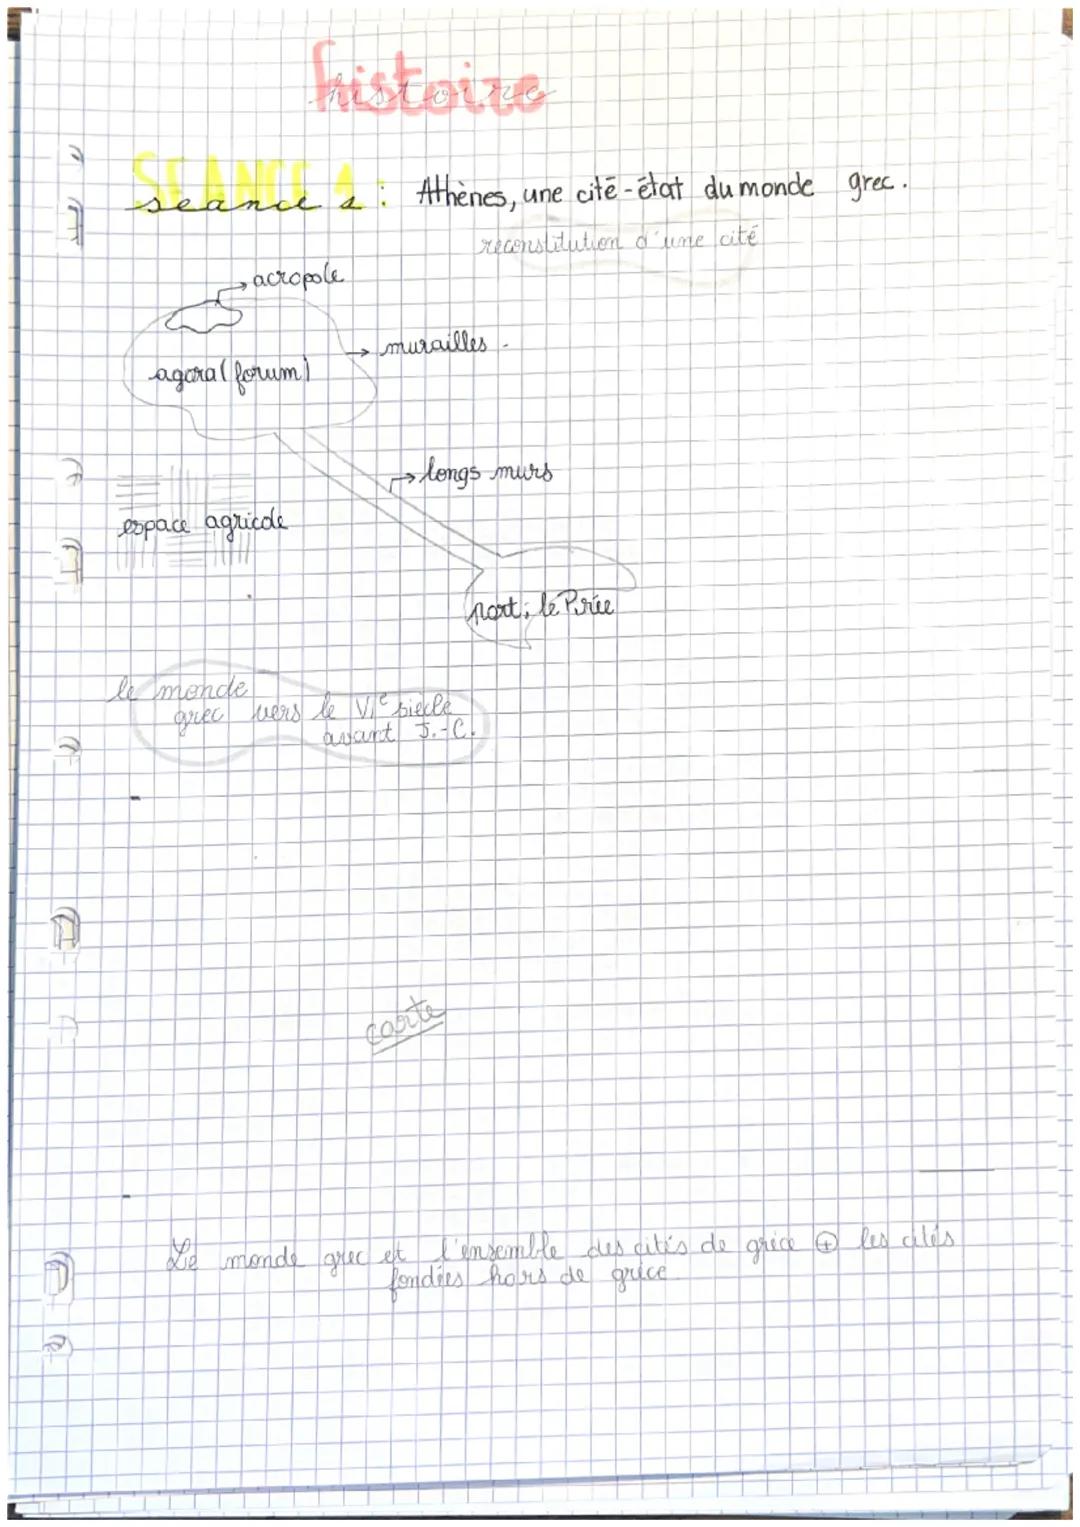 histoire
SEANCE 1 : Athènes, une cité-état du monde grec.
seance 1
reconstitution d'une cité
acropole
murailles
agora (forum)
longs murs
espace agricole
port : le Pirée
le monde
grec vers le VIe siècle
avant J.-C.
carte
Le monde grec et l'ensemble des cités de grèce ⊕ les cités
fondées hors de grèce